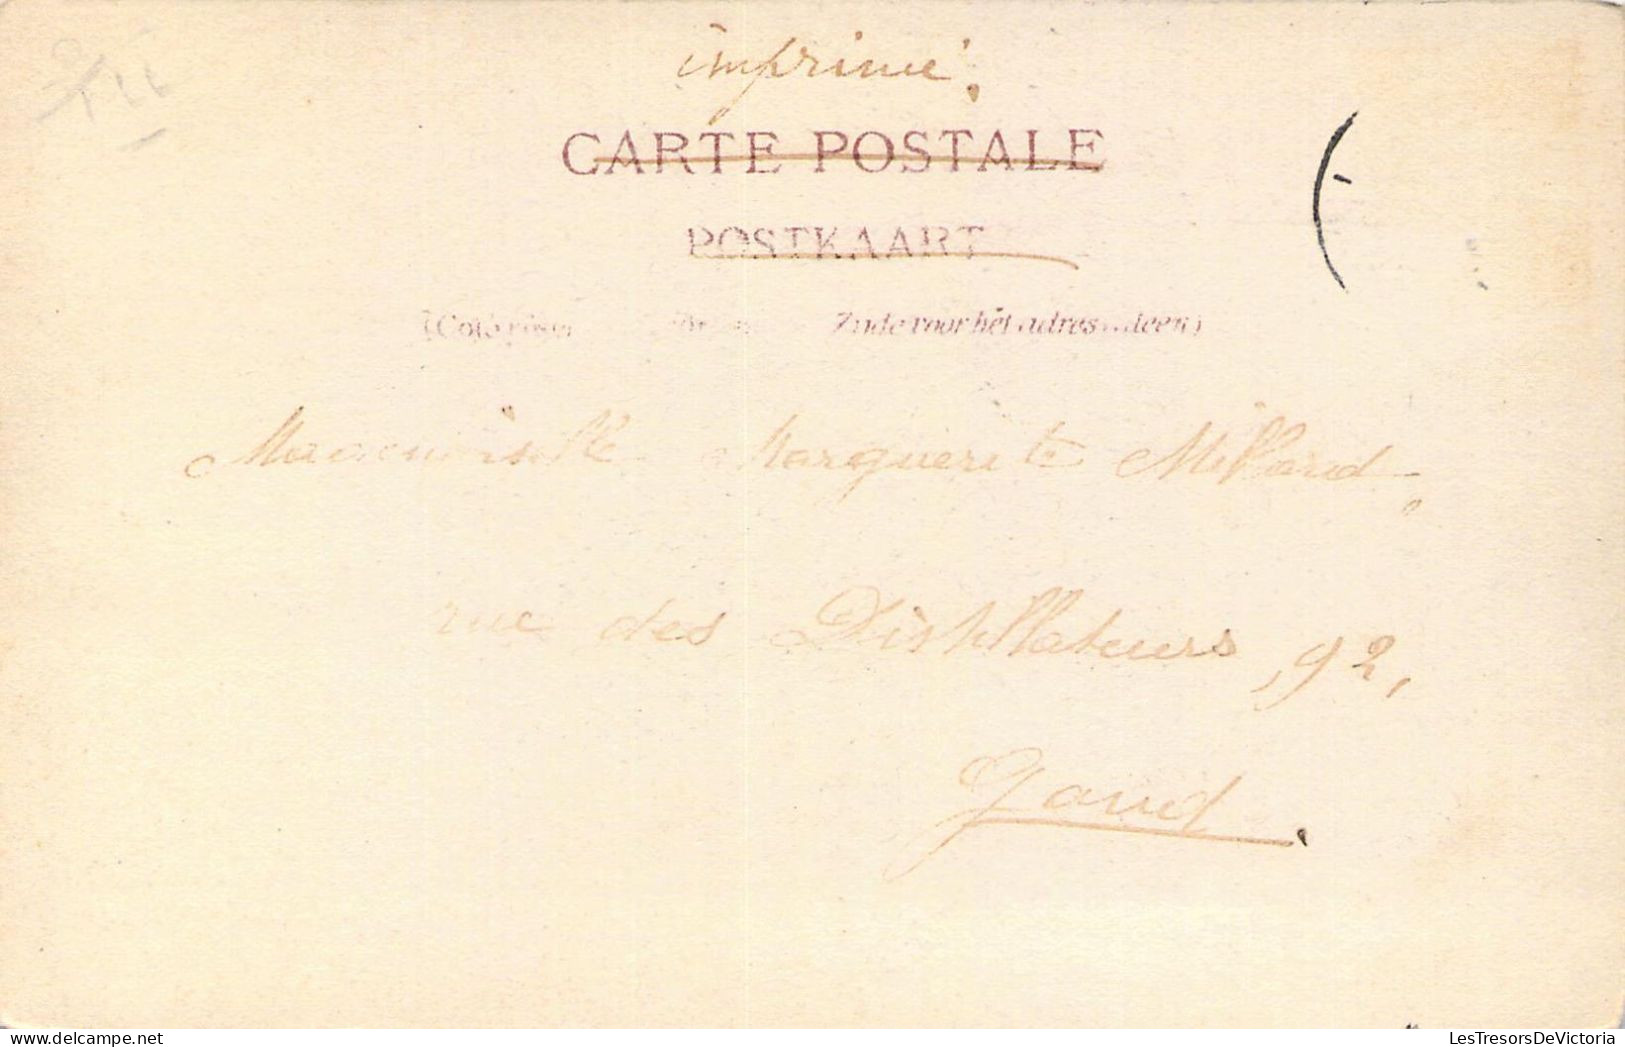 imprimé.
CARTE POSTALE
POSTKAART
(Côté Zijde voor het adres alleen)
Mademoiselle Marguerite Millard,
rue des Distillateurs, 92,
Gand.
LesTresorsDeVictoria